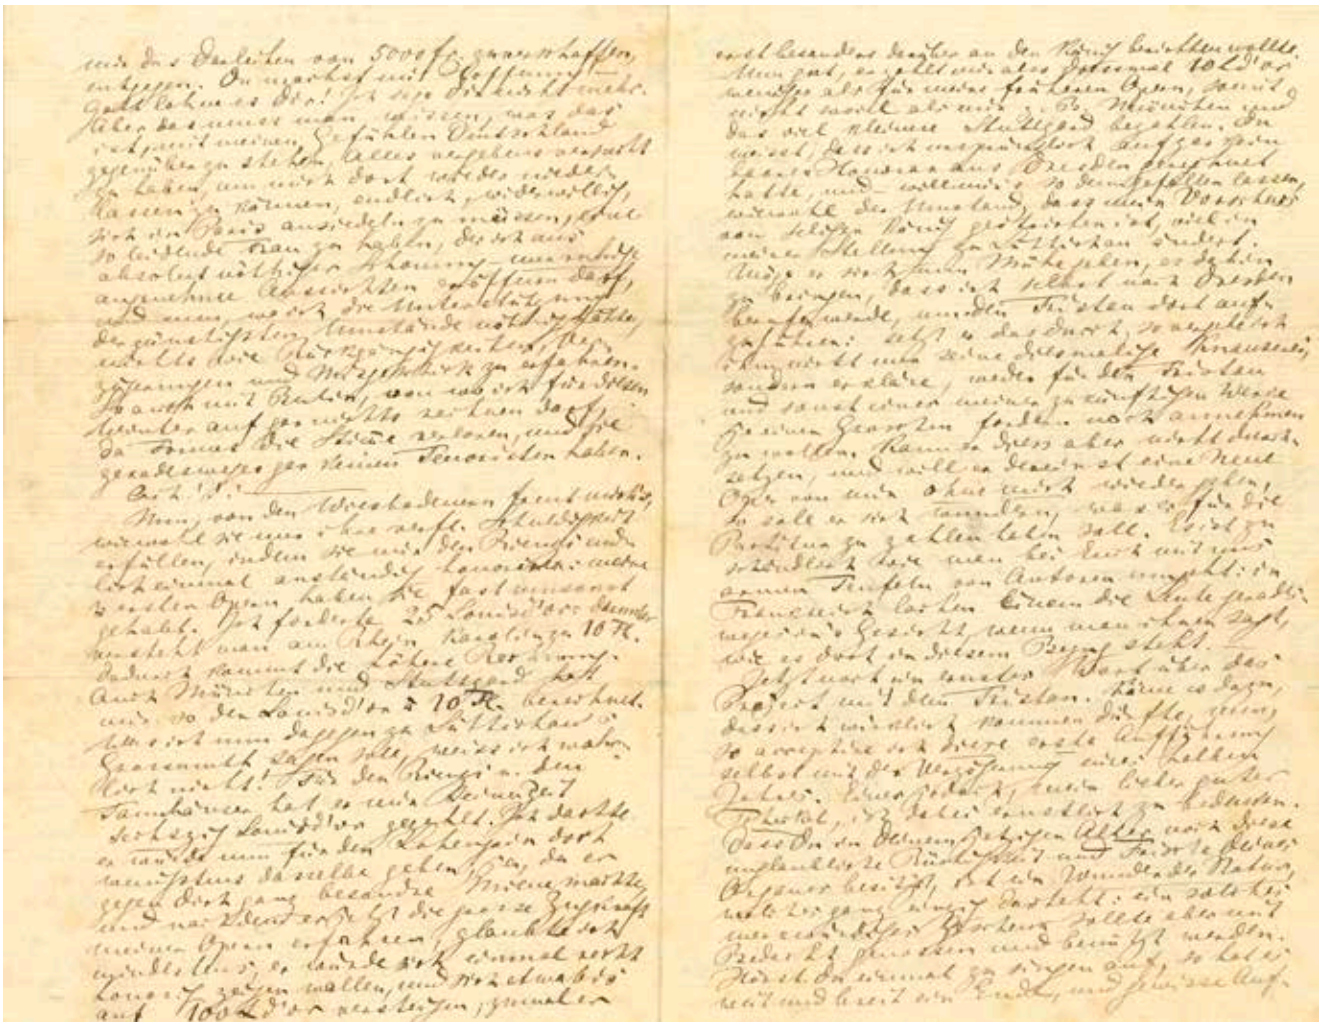 mir das Darleihen von 5000 fr. zu verschaffen,
entgegen. Du machst mir Hoffnung —
Gott lohne es Dir! Ich sage Dir nicht mehr.
Aber das muss man wissen, was das
ist, mit meinen Gefühlen Deutschland
gegenüber zu stehen, Alles vergebens versucht
zu haben, um mich dort wieder nieder-
lassen zu können, endlich, widerwillig,
sich in Paris ansiedeln zu müssen, eine
so leidende Frau zu haben, der ich aus
absolut nöthiger Schonung nur ruhige
angenehme Aussichten eröffnen darf,
und nun, wo ich die Unterstützung
der günstigsten Umstände nöthig hätte,
nichts wie
und Missgeschick zu erfahren.
So auch mit Berlin, von wo ich für diesen
Winter auf gar nichts rechnen darf,
da Formes die Stimme verloren, und sie
geradesweges gar keinen Tenoristen haben.
Ach!!!
Nun, von den Wiesbadenern freut mich's,
wiewohl sie nur ihre verfl. Schuldigkeit
erfüllen, indem sie mir den Rienzi end-
lich einmal anständig honoriren: meine
ersten Opern haben sie fast umsonst
gehabt. Ich forderte 25 Louisd'or: darunter
versteht man am Rhein à 10 Fl.
Dadurch kommt die höhere Rechnung.
Auch München und Stuttgard hat
mir so den Louisd'or à 10 Fl. berechnet.
Was ich nun dagegen zu Lüttichau's
Grossmuth sagen soll, weiss ich wahr-
lich nicht! Für den Rienzi u. den
Tannhäuser hat er mir seiner Zeit
sechszig Louisd'or gezahlt. Ich dachte
er würde nun für den Lohengrin doch
wenigstens dasselbe geben, ja, da er
gegen Dich ganz besondre Miene machte,
und nachdem er jetzt die grosse Zugkraft
meiner Opern erfahren, glaubte ich
mindestens, er würde sich einmal recht
honorig zeigen wollen, und sich etwa bis
auf 100 Ld'or versteigen, zumal er
erst besonders darüber an den König berichten wollte.
Nun gut, er zahlt mir also diesesmal 10 Ld'or
weniger als für meine früheren Opern, somit
nicht soviel als mir z. B. München und
das viel kleinere Stuttgard bezahlen. Du
weisst, dass ich ursprünglich auf gar kein
Honorar aus Dresden gerechnet
hatte, und will mir's so denn gefallen lassen,
wiewohl der Umstand, dass mein Vorschuss
vom seligen König gestrichen ist, viel in
meiner Stellung zu Lüttichau ändert.
Möge er sich nun Mühe geben, es dahin
zu bringen, dass ich selbst nach Dresden
berufen werde, um den Tristan dort auf-
zuführen: setzt er das durch, so vergebe ich
ihm nicht nur seine diesmalige Knauserei,
sondern erkläre, weder für den Tristan
und sonst einer meiner zukünftigen Werke
je einen Groschen fordern noch annehmen
zu wollen. Kann er diess aber nicht durch-
setzen, und will er dereinst eine neue
Oper von mir ohne mich wiedergeben,
so soll er sich wundern, was er für die
Partitur zu zahlen haben soll. Es ist zu
schändlich wie man bei Euch mit uns
armen Teufeln von Autoren umgeht: in
Frankreich lachen Einem die Leute gerades-
weges in's Gesicht, wenn man ihnen sagt,
wie es dort in diesem Bezug steht. —
Jetzt noch ein ernstes Wort über das
Project mit dem Tristan. Käme es dazu,
dass ich wirklich kommen dürfte, nun,
so acceptire ich diese erste Aufführung
selbst mit der Verzögerung eines halben
Jahres. Eines jedoch, mein lieber guter
ist dabei ernstlich zu bedenken.
Dass Du in Deinem jetzigen Alter noch diese
unglaubliche Rüstigkeit und Frische Deines
Organes besitzest, ist ein Wunder der Natur,
welches ganz einzig dasteht: ein solches
merkwürdiges Geschenk sollte aber mit
Bedacht genossen und benützt werden.
Hörst Du einmal zu singen auf, so hat es
weit und breit ein Ende, und gewisse Auf-